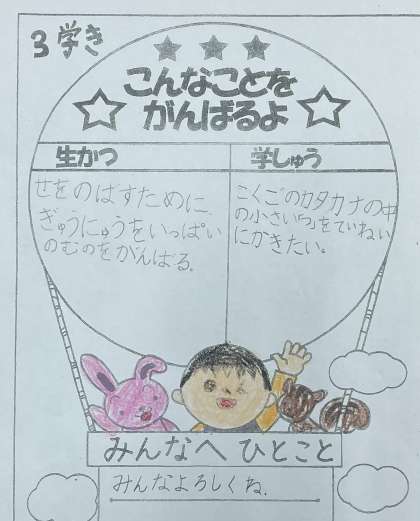 3学き
こんなことを
がんばるよ
生かつ
学しゅう
せをのばすために、
ぎゅうにゅうをいっぱい
のむのをがんばる。
こくごのカタカナの中
の小さい「ッ」をていねい
にかきたい。
みんなへ ひとこと
みんなよろしくね。